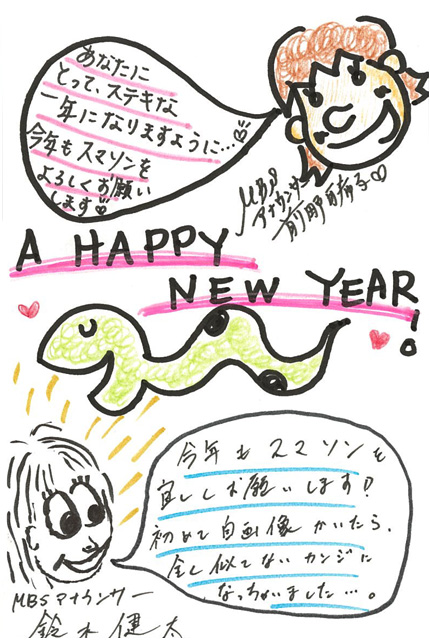 あなたに
とって、ステキな
一年になりますように…
今年もスマソンを
よろしくお願い
します
MBS
アナウンサー
前野有香子
A HAPPY
NEW YEAR!
今年もスマソンを
宜しくお願いします!
初めて自画像かいたら、
全く似てないカンジに
なっちゃいました…。
MBSアナウンサー
鈴木健太